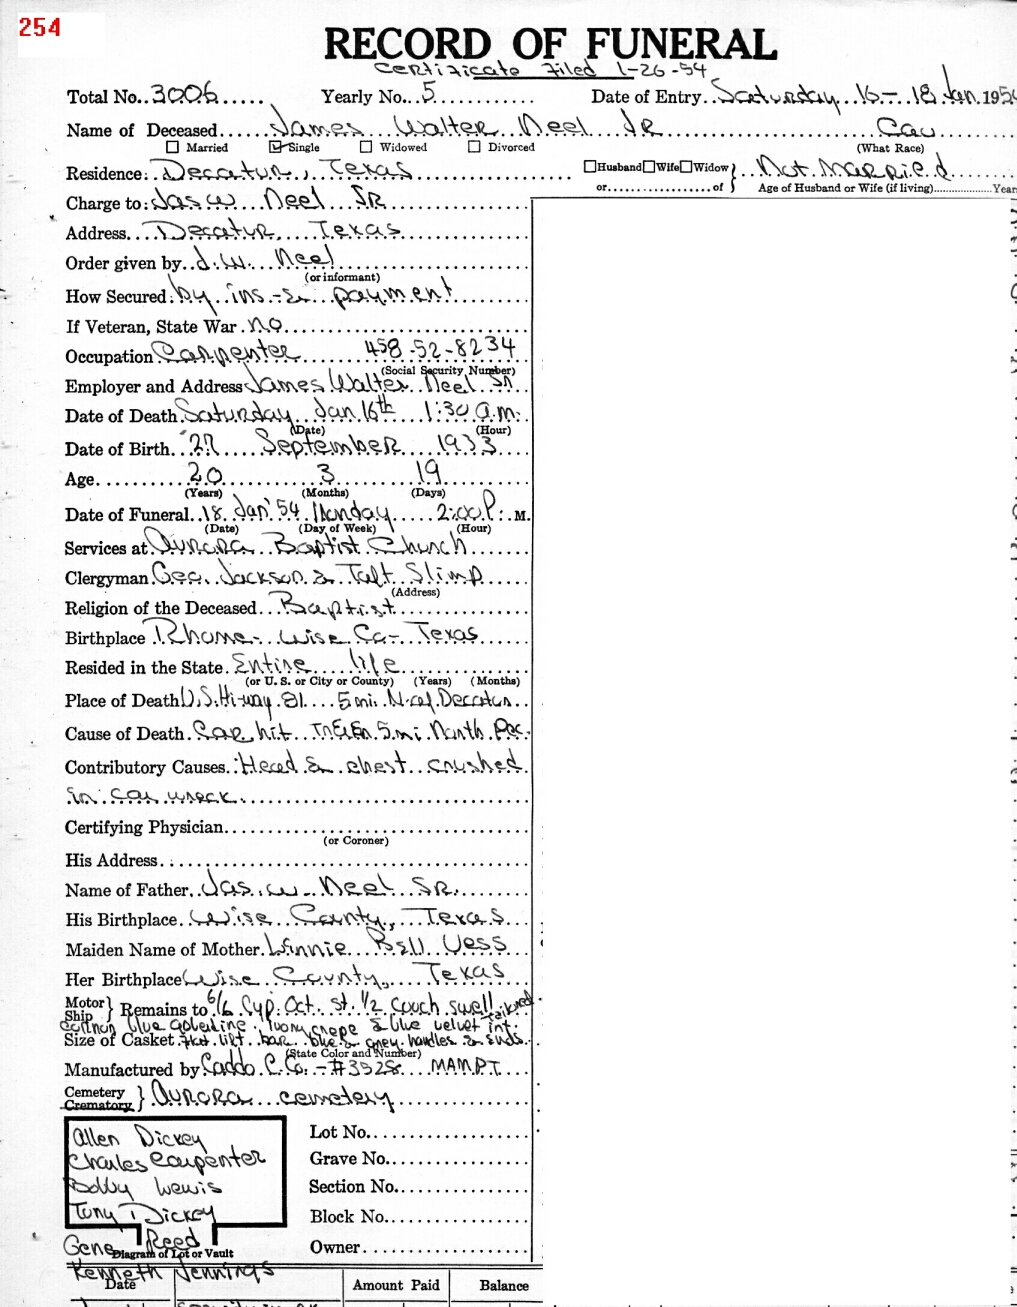 254
RECORD OF FUNERAL
Certificate Filed 1-26-54
Total No. 3006 Yearly No. 5 Date of Entry Saturday 16 - 18 Jan. 195
Name of Deceased James Walter Neel Jr Cau
Married Single Widowed Divorced (What Race)
Residence: Decatur, Texas Husband Wife Widow } Not Married
or of Age of Husband or Wife (if living) Year
Charge to: Jas W Neel SR
Address Decatur Texas
Order given by J.W. Neel
(or informant)
How Secured by ins - & payment
If Veteran, State War no
Occupation Carpenter 458-52-8234
(Social Security Number)
Employer and Address James Walter Neel Sr
Date of Death Saturday Jan 16th 1:30 a.m.
(Date) (Hour)
Date of Birth 27 September 1933
Age 20 3 19
(Years) (Months) (Days)
Date of Funeral 18 Jan '54 Monday 2:00 P. M.
(Date) (Day of Week) (Hour)
Services at Aurora Baptist Church
Clergyman Geo. Jackson & Talt Slimp
(Address)
Religion of the Deceased Baptist
Birthplace Rhome - Wise Co - Texas
Resided in the State Entire life
(or U. S. or City or County) (Years) (Months)
Place of Death U.S. Hi-way 81 5 mi. N. of Decatur
Cause of Death Car hit 5 mi North Dec.
Contributory Causes: Head & chest crushed
in car wreck
Certifying Physician
(or Coroner)
His Address
Name of Father Jas. W Neel SR.
His Birthplace Wise County, Texas
Maiden Name of Mother Winnie Bell Vess
Her Birthplace Wise County, Texas
Motor
Ship } Remains to 6/6 Cyp. Oct. st. 1/2 couch swell tailored
blue Ivory crepe & blue velvet int.
Size of Casket flat lift bar blue & grey handles & ends.
(State Color and Number)
Manufactured by Caddo C. Co. - #3528
Cemetery
Crematory } Aurora cemetery
Allen Dickey
Charles Carpenter
Bobby Lewis
Tony Dickey
Gene Reed
Kenneth Jennings
Lot No.
Grave No.
Section No.
Block No.
Owner
Diagram of Lot or Vault
Date Amount Paid Balance